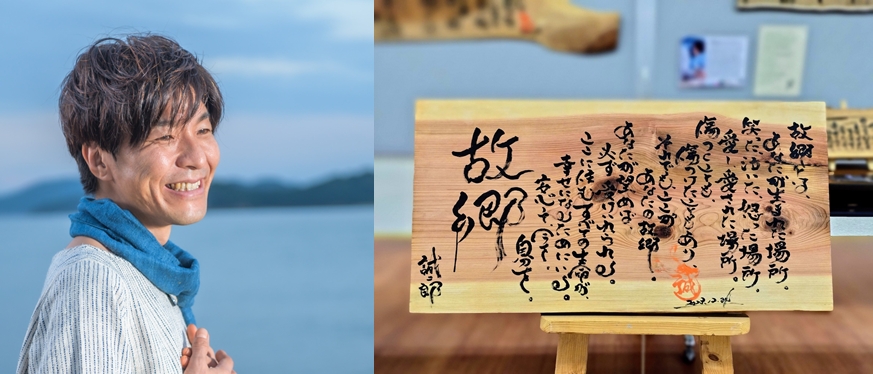 故郷とは、
あなたが生まれた場所。
笑った泣いた怒った場所。
愛し愛された場所。
傷つこても、
傷つけたこともあり
それでも、ここが
あなたの故郷。
あなたが望めば
必ず受け入れられる。
ここに住むすべての生命が、
幸せになるためにいる。
安心して
自分を。
故郷
誠二郎